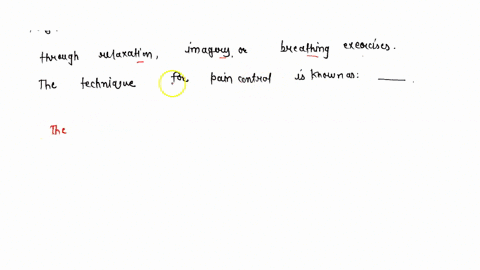 through relaxation, imagery or breathing exercises.
The technique for pain control is known as: ____.
The